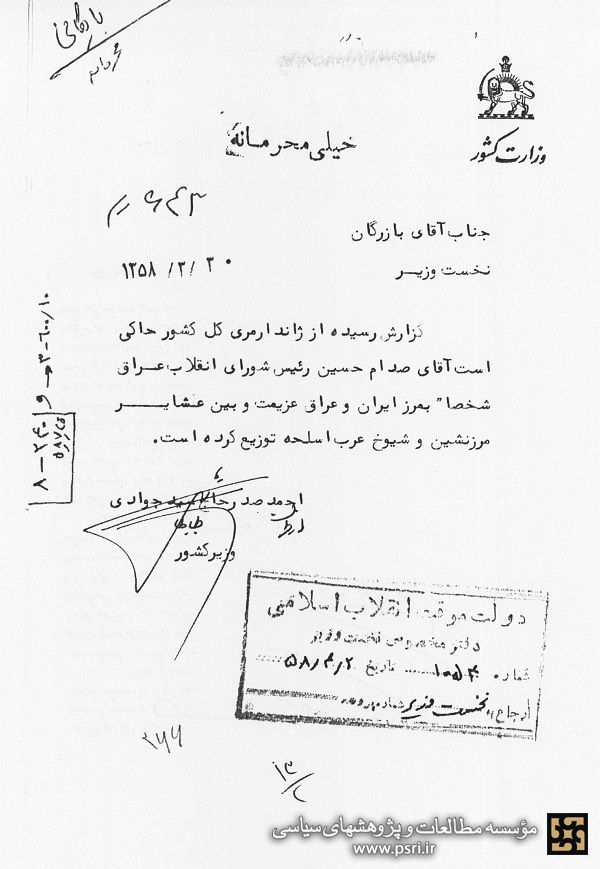 بایگانی
محرمانه
وزارت کشور
خیلی محرمانه
۶۴۳ م
جناب آقای بازرگان
نخست وزیر
۱۳۵۸/۳/۳۰
گزارش رسیده از ژاندارمری کل کشور حاکی
است آقای صدام حسین رئیس شورای انقلاب عراق
شخصا" بمرز ایران و عراق عزیمت و بین عشایر
مرزنشین و شیوخ عرب اسلحه توزیع کرده است.
احمد صدر حاج سید جوادی
وزیر کشور
دولت موقت انقلاب اسلامی
دفتر مخصوص نخست وزیر
شماره ۱۰۵۴ تاریخ ۵۸/۴/۲
ارجاع به نخست وزیر شماره پرونده
۲۶۶
۱۳
مؤسسه مطالعات و پژوهشهای سیاسی
www.psri.ir